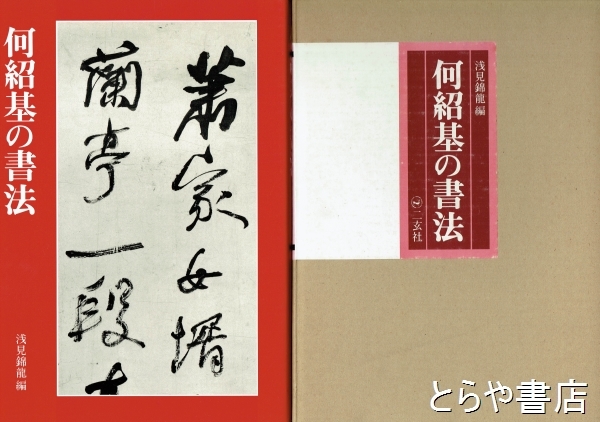 何紹基の書法
蕭家女壻
蘭亭一段
浅見錦龍 編
浅見錦龍 編
何紹基の書法
二玄社
とらや書店